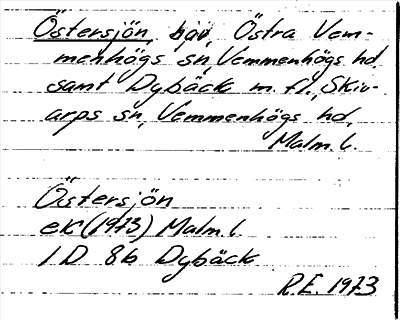 Östersjön, hav, Östra Vem-
menhögs sn, Vemmenhögs hd
samt Dybäck m. fl., Skiv-
arps sn, Vemmenhögs hd,
Malm. l.
Östersjön
ek (1973) Malm. l.
1 D 8b Dybäck
R.E. 1973